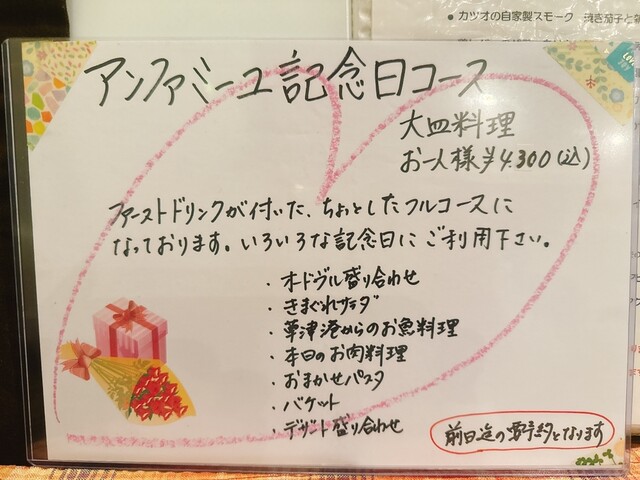 ● カツオの自家製スモーク 焼き茄子と
アンファミーユ記念日コース
大皿料理
お一人様¥4.300(込)
ファーストドリンクが付いた、ちょっとしたフルコースに
なっております。いろいろな記念日にご利用下さい。
・オードヴル盛り合わせ
・きまぐれサラダ
・草津港からのお魚料理
・本日のお肉料理
・おまかせパスタ
・バケット
・デザート盛り合わせ
前日迄の要予約となります